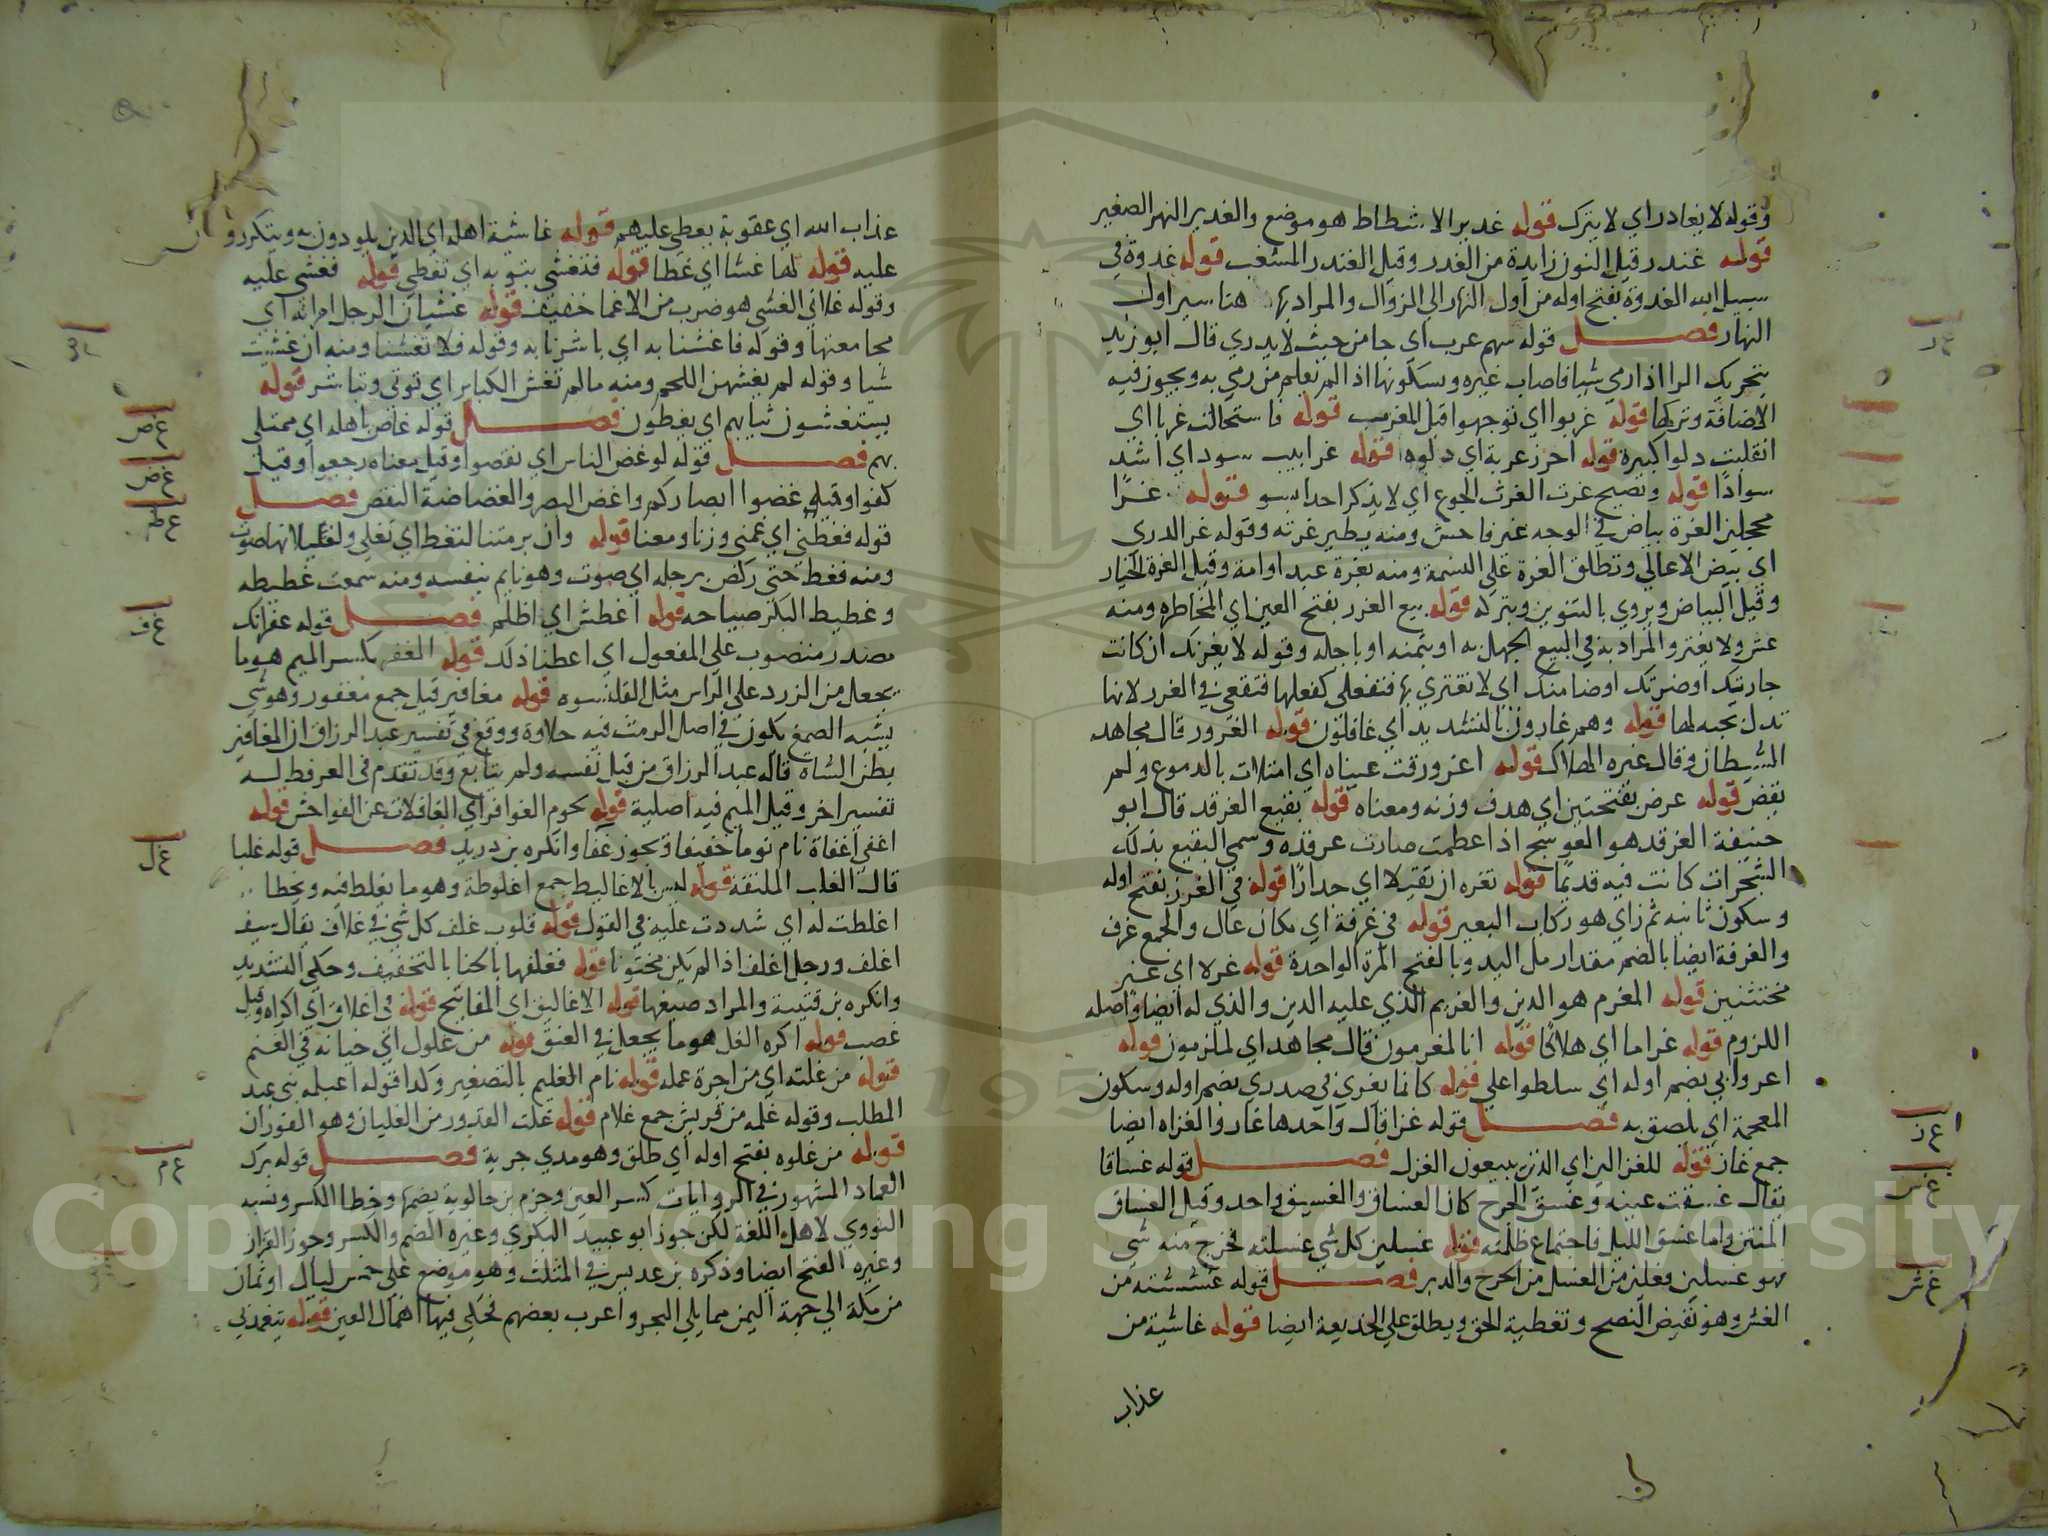 وقوله لا يغادر اي لا يترك قوله غدير الاشطاط هو موضع والغدير النهر الصغير
قوله غندر قيل النون زايدة من الغدر وقيل الغندر المشغب قوله غدوة في
سبيل الله الغدوة بفتح اوله من اول النهار الي الزوال والمراد بها هنا سير اول
النهار فصل قوله سهم غرب اي جا من حيث لا يدري قال ابو زيد
بتحريك الرا اذا رمي شيا فاصاب غيره وبسكونها اذا لم يعلم من رمي به ويجوز فيه
الاضافة وتركها قوله غربوا اي توجهوا قبل المغرب قوله فاستحالت غربا اي
انقلبت دلوا كبيرة قوله اخرز غربه اي دلوه قوله غرابيب سود اي اشد
سوادًا قوله وتصبح غرثى الغرث الجوع اي لا يذكر احدا بسو قوله غرًا
محجلين الغرة بياض في الوجه غير فاحش ومنه يطير غرته وقوله غر الذري
اي بيض الاعالي وتطلق الغرة على النسمة ومنه بغرة عبد او امة وقيل الغرة الخيار
وقيل البياض ويروي بالتنوين وبتركه قوله بيع الغرر بفتح الغين اي المخاطره ومنه
عش ولا تغتر والمراد به في البيع الجهل به او بثمنه او باجله وقوله لا يغرنك ان كانت
جارتك اوضرتك اوضا منك اي لا تغتري بها فتفعلي كفعلها فتقعي في الغرر لانها
تدل بحبه لها قوله وهم غارون بالتشديد اي غافلون قوله الغرور قال مجاهد
الشيطان وقال غيره الهلاك قوله اغرورقت عيناه اي امتلات بالدموع ولم
تفض قوله غرض بفتحتين اي هدف وزنه ومعناه قوله بقيع الغرقد قال ابو
حنيفة الغرقد هو العوسج اذا عظمت صارت غرقدة وسمي البقيع بذلك
الشجرات كانت فيه قديمًا قوله تغره ان يقتلا اي حذارًا قوله في الغرز بفتح اوله
وسكون ثانيه ثم زاي هو ركاب البعير قوله في غرفة اي مكان عال والجمع غرف
والغرفة ايضا بالضم مقدار مل اليد وبالفتح المرة الواحدة قوله غرلا اي غير
مختتنين قوله المغرم هو الدين والغريم الذي عليه الدين والذي له ايضا واصله
اللزوم قوله غراما اي هلاكا قوله انا لمغرمون قال مجاهد اي لملزمون قوله
اغروا بي بضم اوله اي سلطوا علي قوله كانما يغري في صدري بضم اوله وسكون
المعجمة اي يلصق به فصل قوله غزا قال واحدها غاز والغزاه ايضا
جمع غاز قوله للغزالين اي الذين يبيعون الغزل فصل قوله غساقا
يقال غسقت عينه وغسق الجرح كان الغساق والغسيق واحد وقيل الغساق
المنتن واما غسق الليل فاجتماع ظلمته قوله غسلين كل شي غسلته فخرج منه شي
فهو غسلين فعلين من الغسل من الجرح والدبر فصل قوله غششته من
الغش وهو نقيض النصح وتغطية الحق ويطلق على الخديعة ايضا قوله غاشية من
عذاب
غ ر
غ ز
غ س
غ ش
عذاب الله اي عقوبة يعطي عليهم قوله غاشية اهله اي الذين يلوذون به ويتكررون
عليه قوله لها غشا اي غطا قوله فتغشي بثوبه اي تغطي قوله فغشي عليه
وقوله علاني الغشي هو ضرب من الاغما خفيف قوله غشيان الرجل امراته اي
مجامعتها وقوله فاغشنا به اي باشرنا به وقوله فلا تغشنا ومنه ان غشيت
شيا وقوله لم يغشهن اللحم ومنه ما لم تغش الكباير اي توتي وتباشر قوله
يستغشون ثيابهم اي يغطون فصل قوله غاص باهله اي ممتلي
بهم فصل قوله لو غض الناس اي نقصوا وقيل معناه رجعوا وقيل
كفوا وقيل غضوا ابصاركم واغض البصر والغضاضة النقص فصل
قوله فغطني اي غمني وزنا ومعنا قوله وان برمتنا لتغط اي تغلي ولغليلانها صوت
ومنه فغط حتى ركض برجله اي صوت وهو نايم بنفسه ومنه سمعت غطيطه
وغطيط البكر صياحه قوله اغطش اي اظلم فصل قوله غفرانك
مصدر منصوب على المفعول اي اعطنا ذلك قوله المغفر بكسر الميم هو ما
يجعل من الزرد على الراس مثل القلنسوه قوله مغافير قيل جمع مغفور وهو شي
يشبه الصمغ يكون في اصل الرمث فيه حلاوة ووقع في تفسير عبد الرزاق ان المغافير
بطن الشاه قاله عبد الرزاق من قبل نفسه ولم يتابع وقد تقدم في العرفط له
تفسير اخر وقيل الميم فيه اصلية قوله لحوم الغوافر اي الغافلات عن الفواحش قوله
اغفي اغفاة نام نوما خفيفا ويجوز غفا وانكره بن دريد فصل قوله غلبا
قال الغلب الملتفة قوله ليس بالاغاليط جمع اغلوطة وهو ما يغلط فيه ويخطا
اغلظت له اي شددت عليه في القول قوله قلوب غلف كل شي في غلاف يقال سيف
اغلف ورجل اغلف اذا لم يكن مختونا قوله فغلفها بالحنا بالتخفيف وحكي التشديد
وانكره بن قتيبة والمراد صبغها قوله الاغاليق اي المفاتيح قوله في اغلاق اي اكراه وقيل
غضب قوله اكره الغل هو ما يجعل في العنق قوله من غلول اي خيانة في الغنم
قوله من غلته اي من اجرة عمله قوله نام الغليم بالتصغير وكذا قوله اغيلمة بني عبد
المطلب وقوله غلمه من قريش جمع غلام قوله غلت القدور من الغليان وهو الفوران
قوله من غلوه بفتح اوله اي طلق وهو مدي جرية فصل قوله برك
الغماد المشهور في الروايات كسر الغين وجزم بن خالويه بضمها وخطا الكسر ونسبه
النووي لاهل اللغة لكن جوز ابو عبيد البكري وغيره الضم والكسر وجوز القزاز
وغيره الفتح ايضا وذكره بن عديس في المثلث وهو موضع على خمس ليال او ثمان
من مكة الي جهة اليمن مما يلي البحر واغرب بعضهم فحكي فيها اهمال العين قوله يتغمدني
غ ص
غ ض
غ ط
غ ف
غ ل
غ م